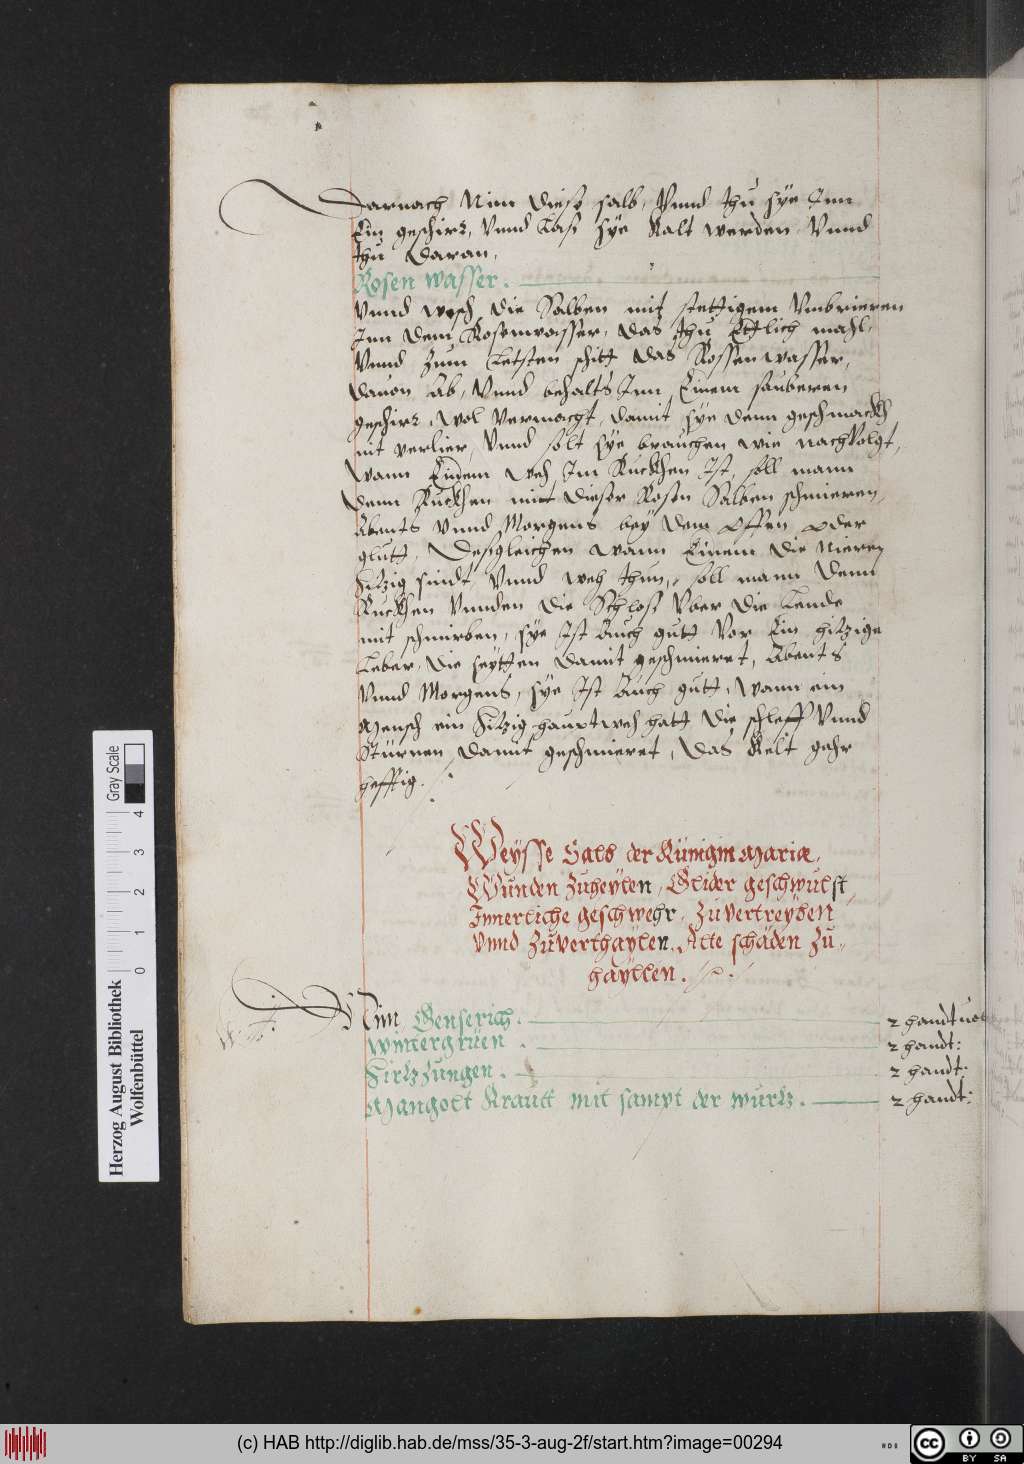 Darnach Nim diese salb, Vnnd thu sÿe Inn
Ein geschirr, Vnnd Laß sÿe Kalt werden Vnnd
thu daran,
Rosen wasser.
Vnnd wesch die Salben mit stettigem Vmbrieren
Inn dem Rosenwasser, das thu Ettlich mahl,
Vnnd zum Letsten schitt das Rossenwasser,
dauon Ab, Vnnd behalts Inn Einem sauberen
geschirr, wol Vermacht, damit sÿe denn geschmackh
nit verlier, Vnnd solt sÿe brauchen wie nachVolgt,
Wann Einem weh Im Ruckhen Ist, soll mann
denn Ruckhen mit dieser Rosen Salben schmieren,
Abents Vnnd Morgens beÿ dem offen oder
glutt, Desgleichen wann Einem die Nieren
hitzig sindt, Vnnd weh thun, soll mann denn
Ruckhen Vnnden die Schloß Vber die Lende
mit schmirben, sÿe Ist Auch gutt Vor Ein hitzige
Leber, die seÿtten damit geschmieret, Abents
Vnnd Morgens, sÿe Ist Auch gutt, Wann ein
Mensch ein hitzig hauptweh hatt die schleff Vnnd
Stürnen damit geschmieret, das Kelt gahr
hefftig.
Weÿsse Salb der Künigin Mariæ,
Wunden zuheÿlen, Glider geschwulst,
Innerliche geschwehr, zu Vertreÿben
Vnnd zu Verthaÿlen, Alte schäden zu
haÿllen.
Nim Genserich. 2 handtuol
Wintergrüen. 2 handt:
Hirtzzungen. 2 handt:
Mangolt Krautt mit sampt der wurtz. 2 handt:
Herzog August Bibliothek
Wolfenbüttel
0 1 2 3 4
Gray Scale
(c) HAB http://diglib.hab.de/mss/35-3-aug-2f/start.htm?image=00294
cc BY SA